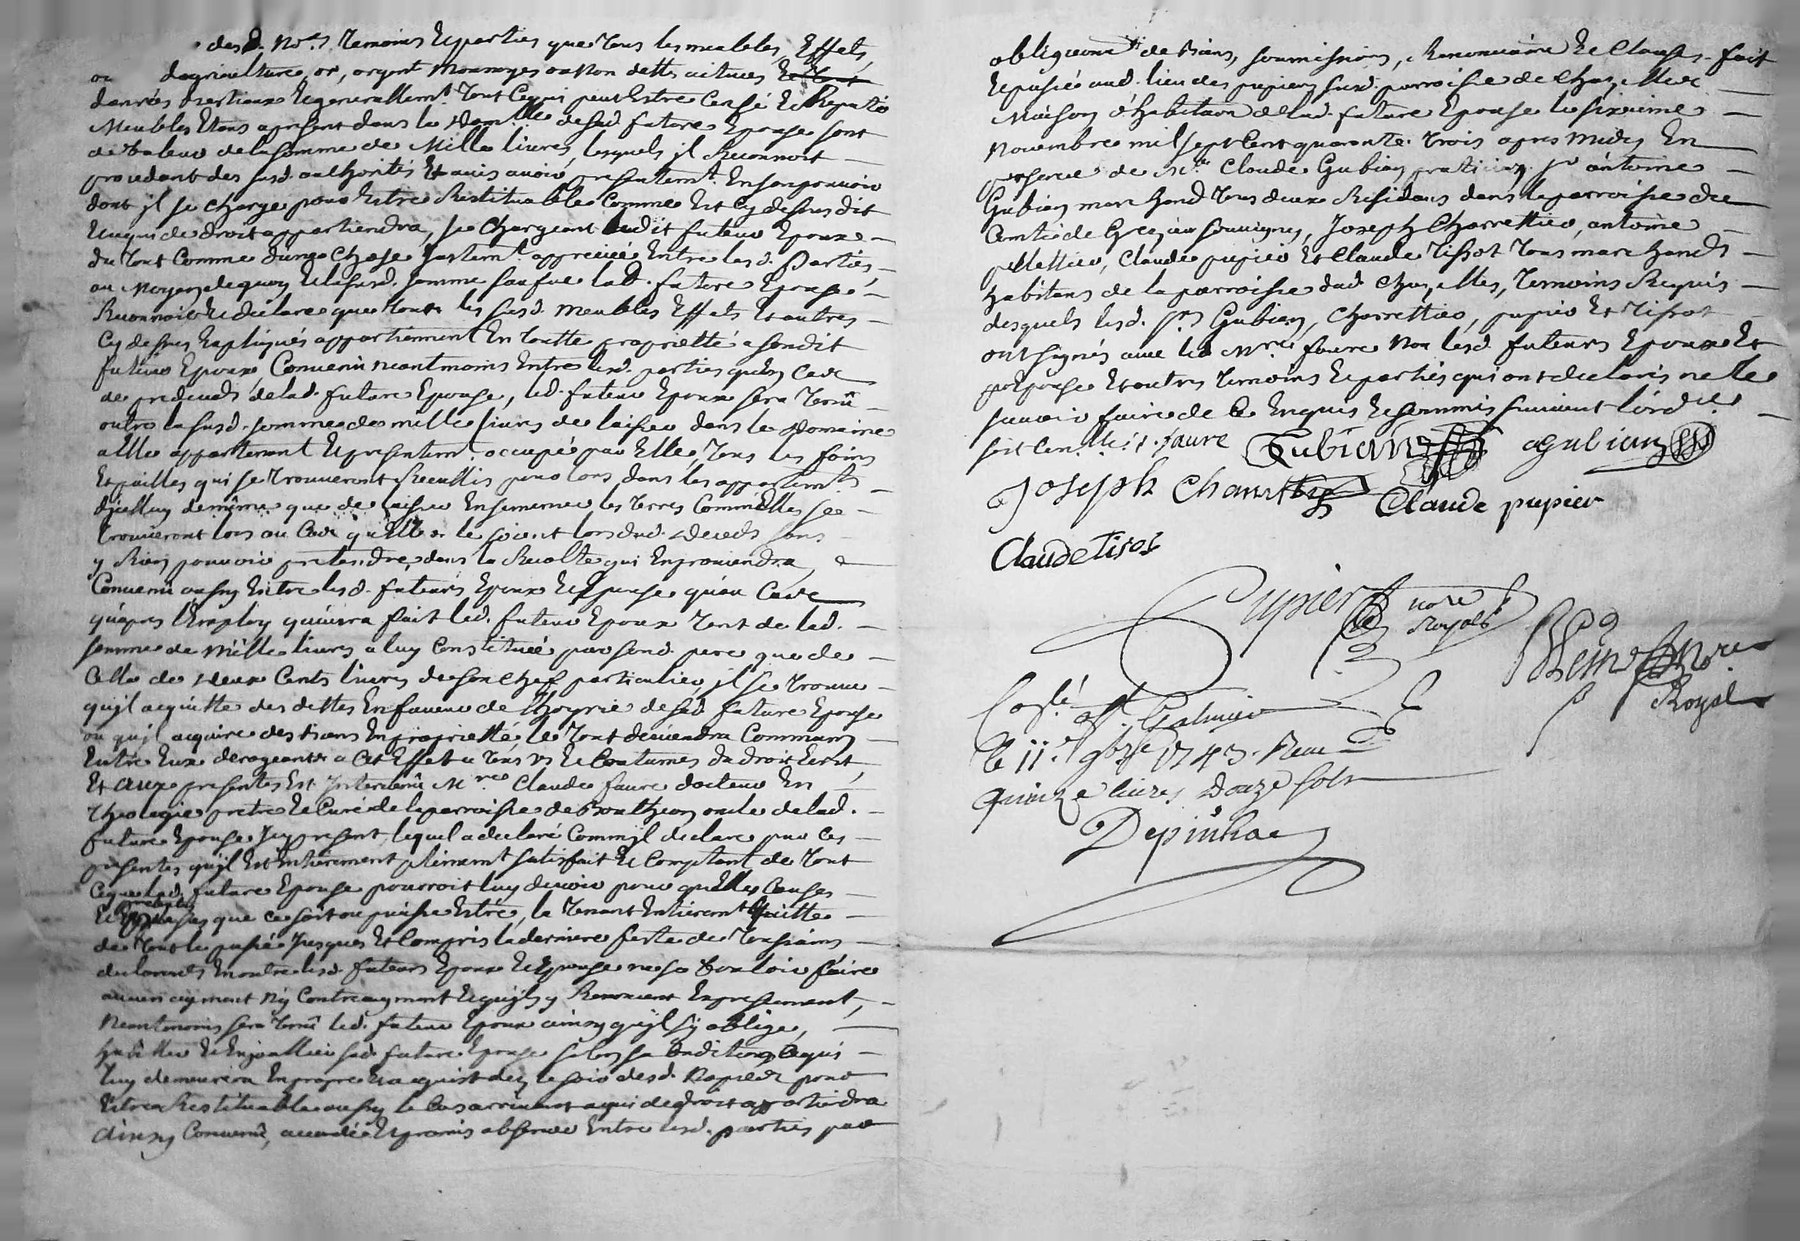 des d. Nres. temoins et parties que tous les meubles, Effets,
ou d'agriculture, or, argent monnoyes ou non dettes actives
danrées bestiaux et generallemt. tout ce qui peut Estre censé et Reputé
Meubles Etans a present dans le domaille de sad. future Epouse sont
de valeur de la somme de Mille livres, lesquels il Reconnoit
procedant des susd. authorités et avis avoir presentemt. En son pouvoir
dont il se charge pour Estre Restituable comme Est cy dessus dit
a qui de droit appartiendra, se chargeant ledit futeur Epoux
du tout comme d'une chose justemt. appreciée Entre lesd. Parties,
au moyen de quoy et de la susd. somme sauf que lad. future Epouse
Reconnoit et declare que tous les susd. meubles Effets et autres
cy dessus Expliqués appartiennent En toutte propriette a sondit
futeur Epoux Convenû neantmoins Entre lesd. parties qu'En Cas
de predeceds de lad. future Epouse, led. futeur Epoux sera tenû
outre la susd. somme de mille livres de laisser dans le domaine
a Elle appartenant Et presentemt. occupé par Elle, tous les foins
Et pailles qui se trouveront Recuillis pour lors dans les appartemts.
d'icelluy de même que de laisser Ensemencer les terres Comme Elles se
trouveront lors au Cas qu'Elles le soient lors dud. deceds sans
y Rien pouvoir pretendre, dans la Recolte qui En proviendra,
Convenû aussy Entre lesd. futeurs Epoux et Epouse qu'au Cas
qu'apres l'Employ qu'aura fait led. futeur Epoux tant de lad.
somme de Mille livres a luy Constituée par sond. pere que de
Celle de deux Cents livres de son chef particulier, il se trouve
qu'jl acquitte des dettes En faveur de l'hoyrie de sad. future Epouse
ou qu'jl acquire des biens En proprietté, le tout deviendra Commun
Entre Eux derogeants a cet Effet a tous us et Coutumes du droit Ecrit,
Et aux presentes Est Intervenû Mre. Claude faure docteur En
theologie pretre et Curé de la parroisse de Boutheon oncle de lad.
future Epouse Icy present, lequel a declaré Comme jl declare par ces
presentes qu'jl Est Entierement plainemt. satisfait et Comptant de tout
Ce que lad. future Epouse pourroit luy devoir pour quelles Causes
que ce soit ou puisse Estre, la tenant Entieremt. quitte
de tout le passé jusques Et Compris la derniere feste de toussaints
declarants En outre lesd. futeurs Epoux et Epouse ne se vouloir faire
aucun augment ny Contreaugment et qu'jls y Renoncent Expressement,
Neantmoins sera tenû led. futeur Epoux ainsy qu'jl s'y oblige,
habiller et Enjoaillier sad. future Epouse selon sa Condition Ce qui
luy demeurera En propre
Estre Restituable aussy le Cas arrivant a qui de droit appartiendra
ainsy Convenû, accordé Et promis observer Entre lesd. parties par
obligeons de biens, soumissions, Renonciaôns et Clauses. fait
et passé aud. lieu des pupier susd. parroisse de Chazelles
Maison d'habitaôn de lad. future Epouse le sixieme
Novembre mil sept cent quarante trois apres midy En
presence de Me. Claude Gubian praticien, sr. antoine
Gubian marchand tous deux Residans dans la parroisse du
Comté de Grezieu souvigny, Joseph Charrettier, antoine
pellettier, Claude pupier Et Claude Tissot tous marchands
habitans de la parroisse dud. Chazelles, temoins Requis
desquels lesd. srs. Gubian, Charrettier, pupier Et Tissot
ont signés avec led. Mre. faure Non lesd. futeurs Epoux Et
Epouse Et autres temoins et parties qui ont declarés ne le
sçavoir faire de Ce Enquis et sommis suivant l'ordce.
soit Con. faure Gubian a gubian
Joseph Charettier Claude pupier
Claude tisot
Pupier nore Royal
Nore Royal
Conlé. a St. Galmier
le 11e. 9bre 1743. Recu
quinze livres douze sols
Depinhac